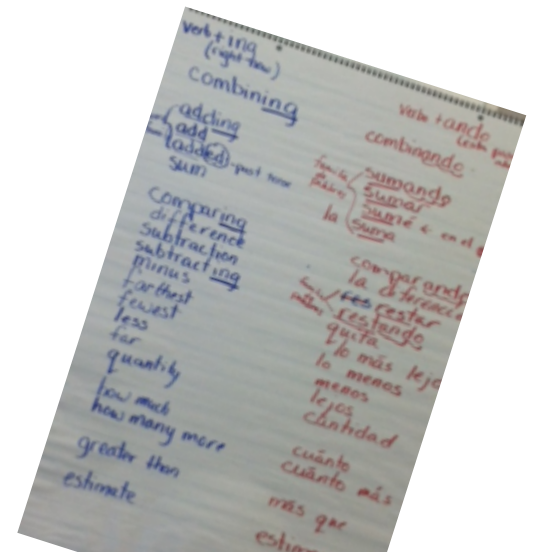 verb + ing
(right now)
combining
adding
add
added - past tense
sum
comparing
difference
subtraction
subtracting
minus
farthest
fewest
less
far
quantity
how much
how many more
greater than
estimate
verbo + ando
combinando
familia de palabras
sumando
sumar
sumé ← en el
la suma
comparando
la diferencia
restar
restando
quita
lo más lejo
lo menos
menos
lejos
cantidad
cuánto
cuánto más
más que
estim